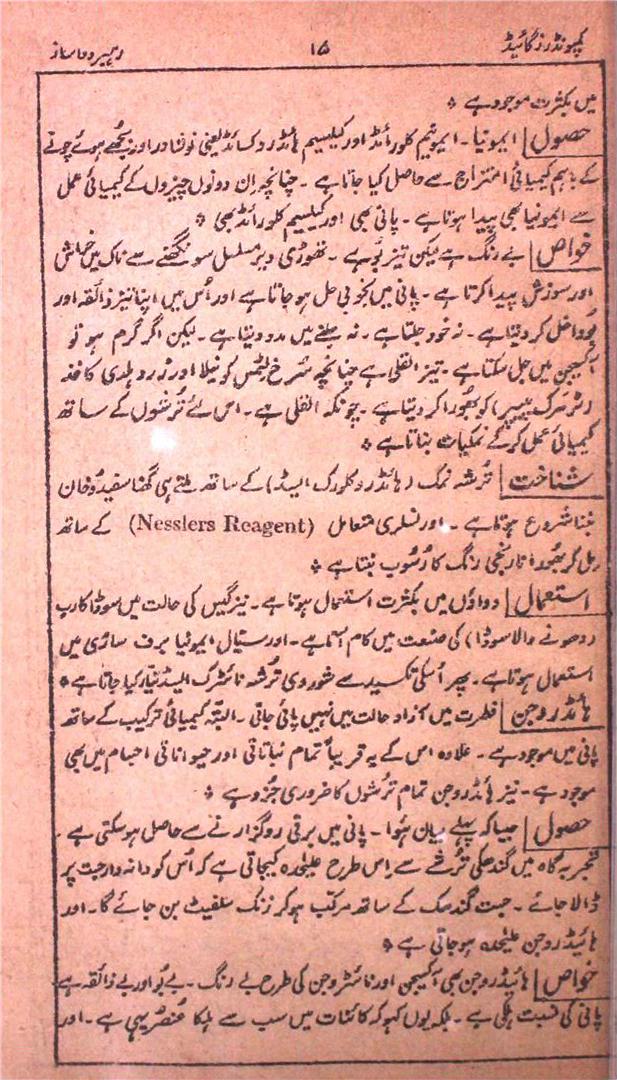 کمپونڈرز گائیڈ ۱۵ رہبر دواساز
میں بکثرت موجود ہے *
حصول ایمونیا ۔ ایمونیم کلورائڈ اور کیلسیم ہائڈروکسائڈ یعنی نوشادر اور بجھے ہوئے چونے
کے باہم کیمیائی امتزاج سے حاصل کیا جاتا ہے ۔ چنانچہ ان دونوں چیزوں کے کیمیائی عمل
سے ایمونیا بھی پیدا ہوتا ہے ۔ پانی بھی اور کیلسیم کلورائڈ بھی *
خواص بے رنگ ہے لیکن تیز بُو ہے ۔ تھوڑی دیر مسلسل سونگھنے سے ناک میں خراش
اور سوزش پیدا کرتا ہے ۔ پانی میں بخوبی حل ہو جاتا ہے اور اُس میں اپنا تیز ذائقہ اور
بُو داخل کر دیتا ہے ۔ نہ خود جلتا ہے ۔ نہ جلنے میں مدد دیتا ہے ۔ لیکن اگر گرم ہو تو
آکسیجن میں جل سکتا ہے ۔ تیز القلی ہے چنانچہ سُرخ لٹمس کو نیلا اور زرد ہلدی کاغذ
(ٹرمرک پیپر) کو بھُورا کر دیتا ہے ۔ چونکہ القلی ہے ۔ اس لئے تُرشوں کے ساتھ
کیمیائی عمل کر کے نمکیات بناتا ہے *
شناخت تُرشہ نمک (ہائڈروکلورک ایسڈ) کے ساتھ ملتے ہی گھنا سفید دُخان
بننا شروع ہوتا ہے ۔ اور نسلری متعامل (Nesslers Reagent) کے ساتھ
مل کر بھُورا نارنجی رنگ کا رُسُوب بنتا ہے *
استعمال دواؤں میں بکثرت استعمال ہوتا ہے ۔ نیز گیس کی حالت میں سوڈا کارب
(دھونے والا سوڈا) کی صنعت میں کام آتا ہے ۔ اور سیال ایمونیا برف سازی میں
استعمال ہوتا ہے ۔ پھر اُسکی تکسید سے شوروی تُرشہ نائٹرک ایسڈ تیار کیا جاتا ہے *
ہائڈروجن فطرت میں آزاد حالت میں نہیں پائی جاتی ۔ البتّہ کیمیائی ترکیب کے ساتھ
پانی میں موجود ہے ۔ علاوہ اس کے یہ قریباً تمام نباتاتی اور حیواناتی اجسام میں بھی
موجود ہے ۔ نیز ہائڈروجن تمام تُرشوں کا ضروری جُزو ہے *
حصول جیسا کہ پہلے بیان ہُوا ۔ پانی میں برقی رَو گزارنے سے حاصل ہو سکتی ہے ۔
تجربہ گاہ میں گندھکی تُرشے سے اِس طرح علیٰحدہ کیجاتی ہے کہ اُس کو دانہ دار جست پر
ڈالا جائے ۔ جست گندھک کے ساتھ مرکب ہو کر زنک سلفیٹ بن جائے گا ۔ اور
ہائیڈروجن علیٰحدہ ہو جاتی ہے *
خواص ہائیڈروجن بھی آکسیجن اور نائٹروجن کی طرح بے رنگ ۔ بے بُو اور بے ذائقہ ہے
پانی کی نسبت ہلکی ہے ۔ بلکہ یوں کہو کہ کائنات میں سب سے ہلکا عُنصر یہی ہے ۔ اور